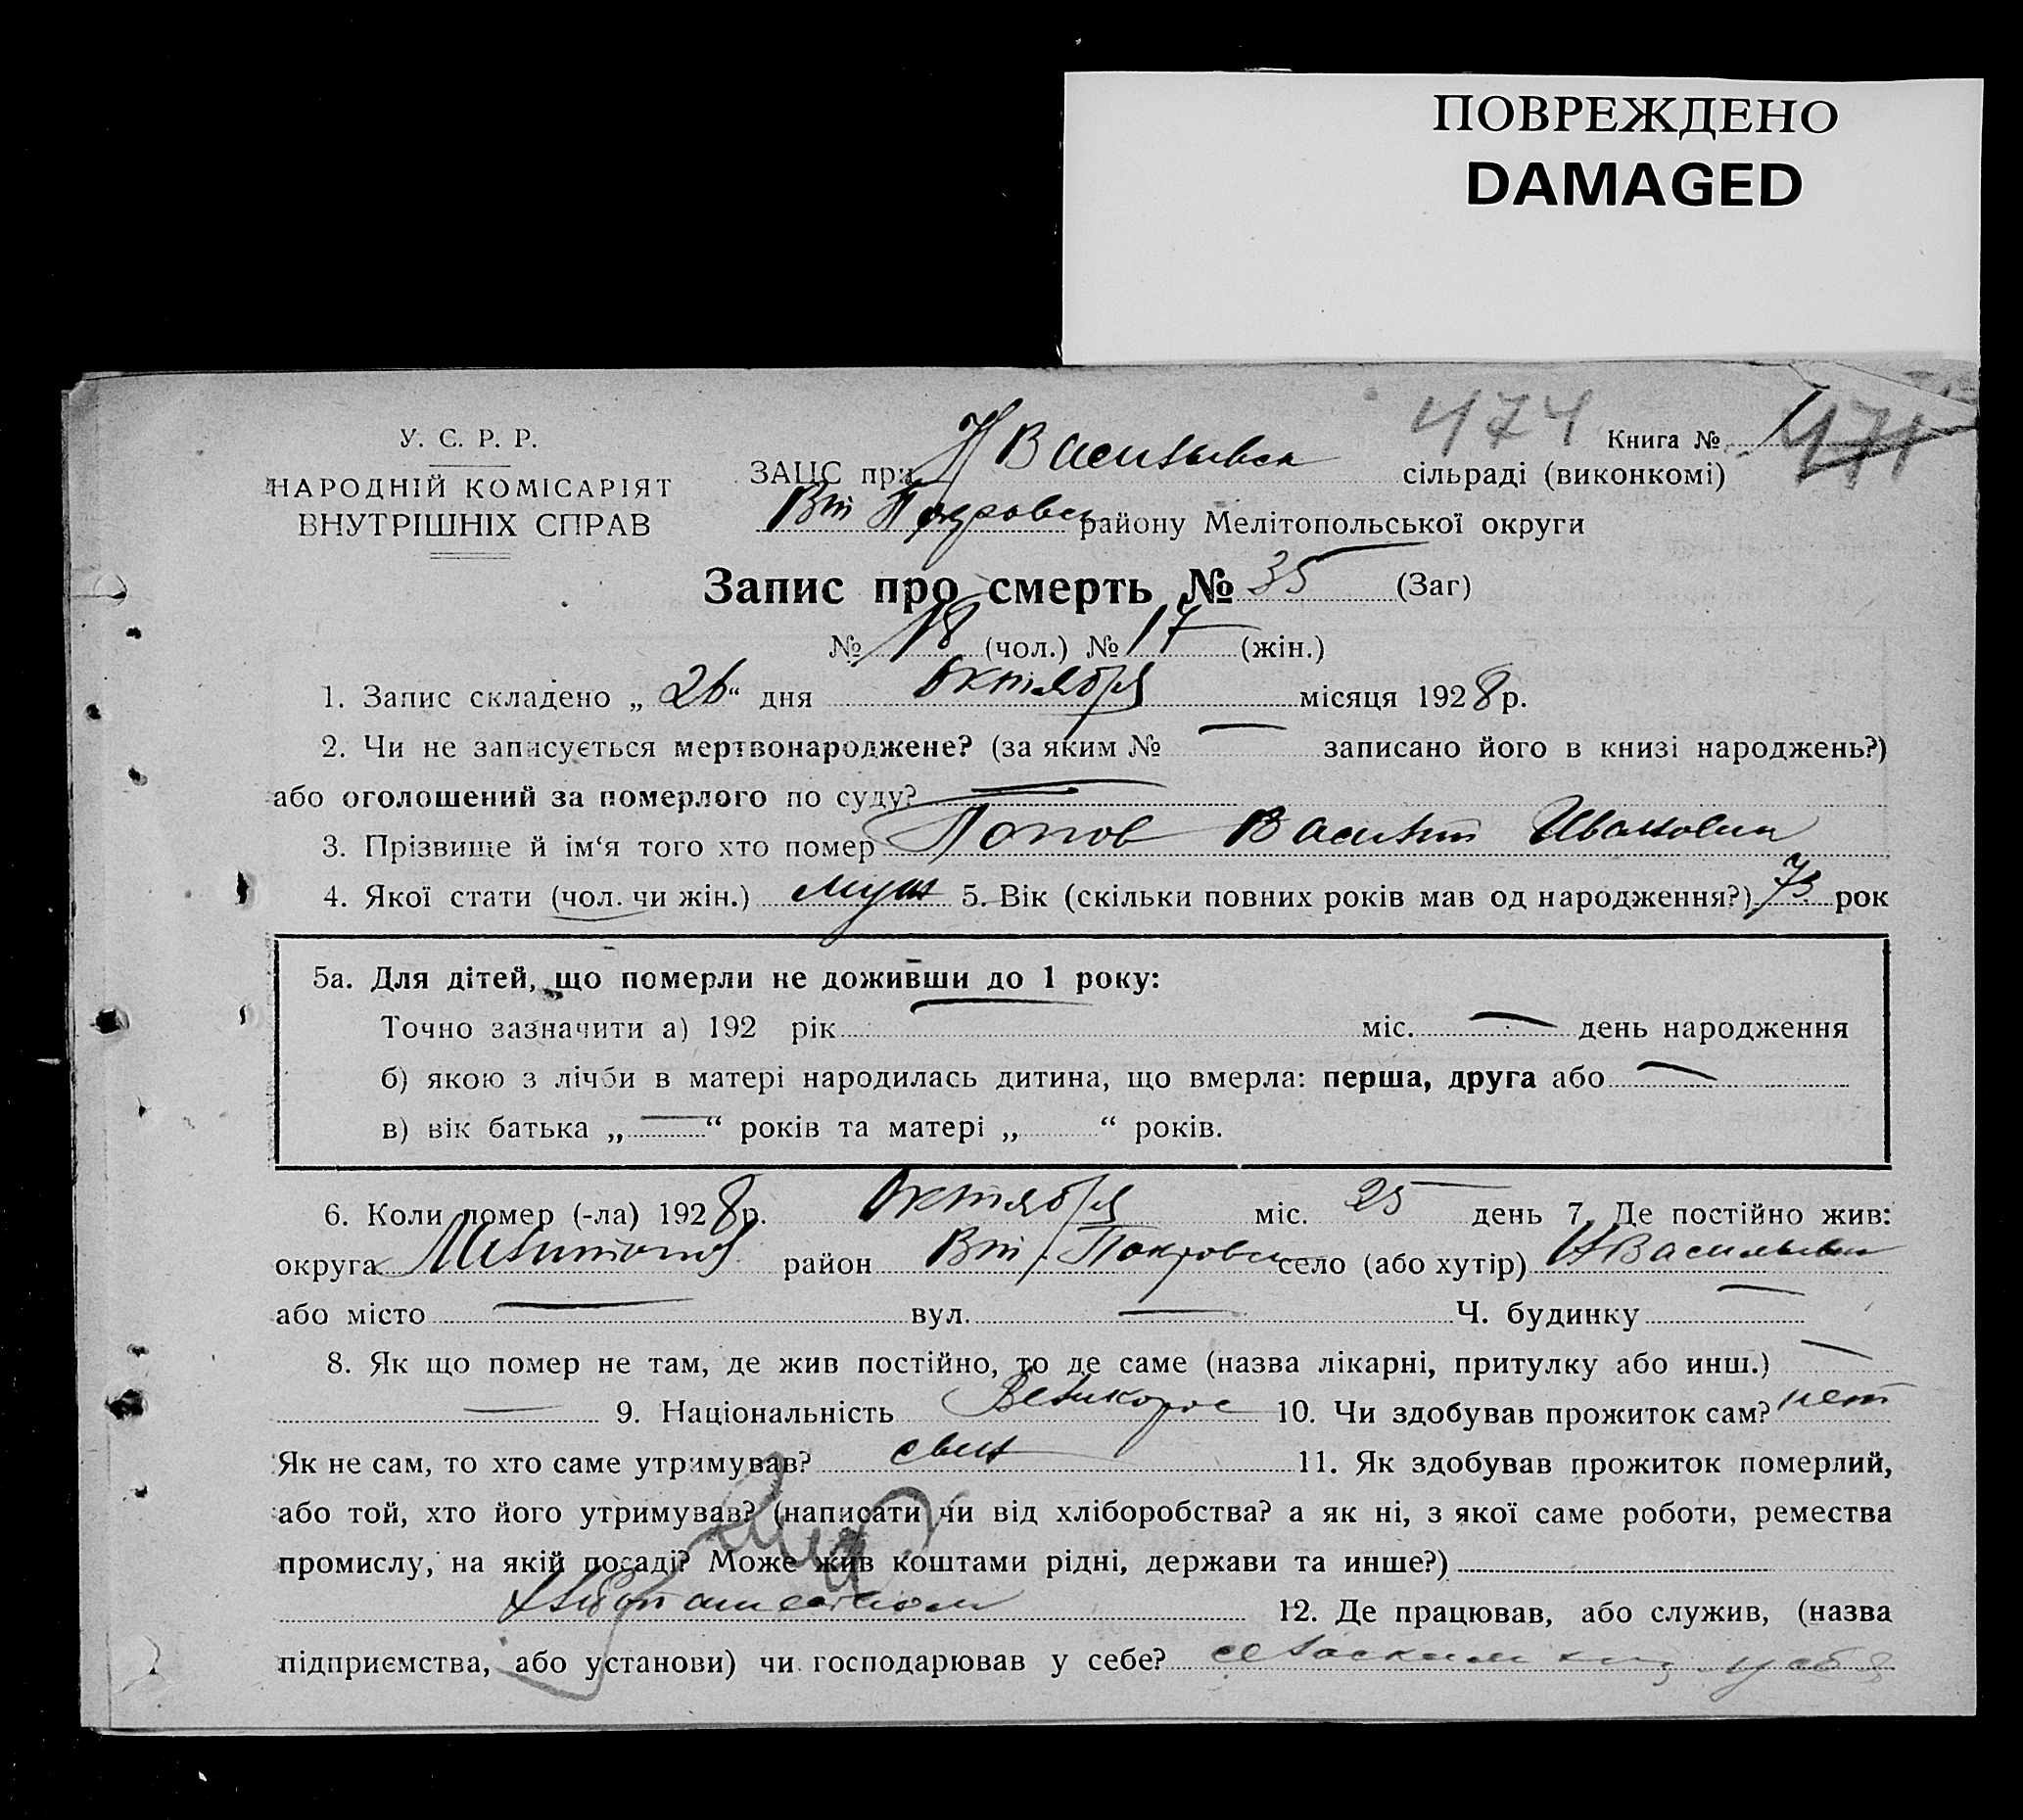 ПОВРЕЖДЕНО
DAMAGED
474
Книга № 1
У. С. Р. Р.
НАРОДНІЙ КОМІСАРІЯТ
ВНУТРІШНІХ СПРАВ
ЗАЦС при Н Васильевск сільраді (виконкомі)
Вт Покровск району Мелітопольської округи
Запис про смерть № 35 (Заг)
№ 18 (чол.) № 17 (жін.)
1. Запис складено „ 26 “ дня октября місяця 1928 р.
2. Чи не записується мертвонароджене? (за яким № — записано його в книзі народжень?)
або оголошений за померлого по суду? —
3. Прізвище й ім‘я того хто помер Попов Василий Иванович
4. Якої стати (чол. чи жін.) муж 5. Вік (скільки повних років мав од народження?) 73 рок
5а. Для дітей, що померли не доживши до 1 року:
Точно зазначити а) 192 рік — міс. — день народження
б) якою з лічби в матері народилась дитина, що вмерла: перша, друга або —
в) вік батька „ — “ років та матері „ “ років.
6. Коли помер (-ла) 1928 р. Октября міс. 25 день 7. Де постійно жив:
округа Мелитопол район Вт. Покровск село (або хутір) Н Васильевк
або місто — вул. — Ч. будинку —
8. Як що помер не там, де жив постійно, то де саме (назва лікарні, притулку або инш.) —
— 9. Національність Великорос 10. Чи здобував прожиток сам? нет
Як не сам, то хто саме утримував? сын 11. Як здобував прожиток померлий,
або той, хто його утримував? (написати чи від хліборобства? а як ні, з якої саме роботи, ремества
промислу, на якій посаді? Може жив коштами рідні, держави та инше?)
хлебопашеством 12. Де працював, або служив, (назва
підприємства, або установи) чи господарював у себе? сельским хоз у себя